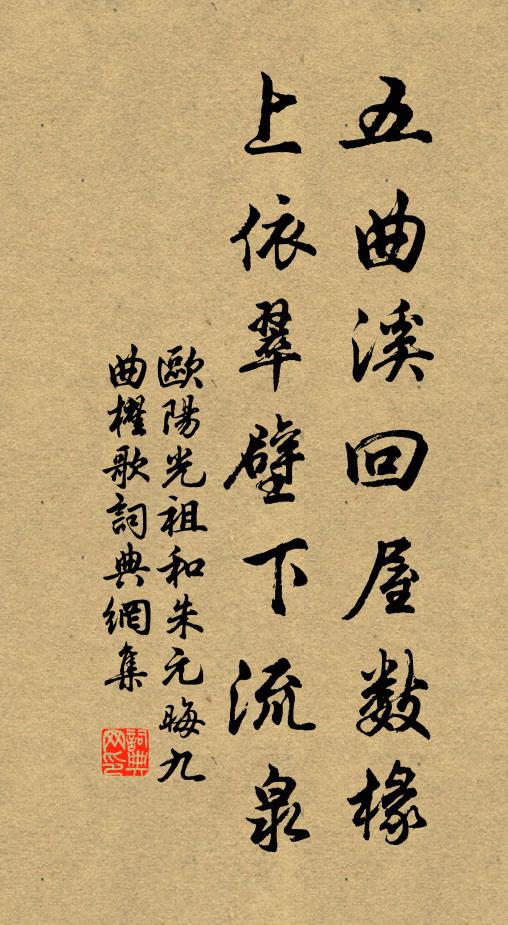 五曲溪回屋數椽
上依翠壁下流泉
歐陽光祖和朱元晦九
曲櫂歌詞典網集
詞典
網印